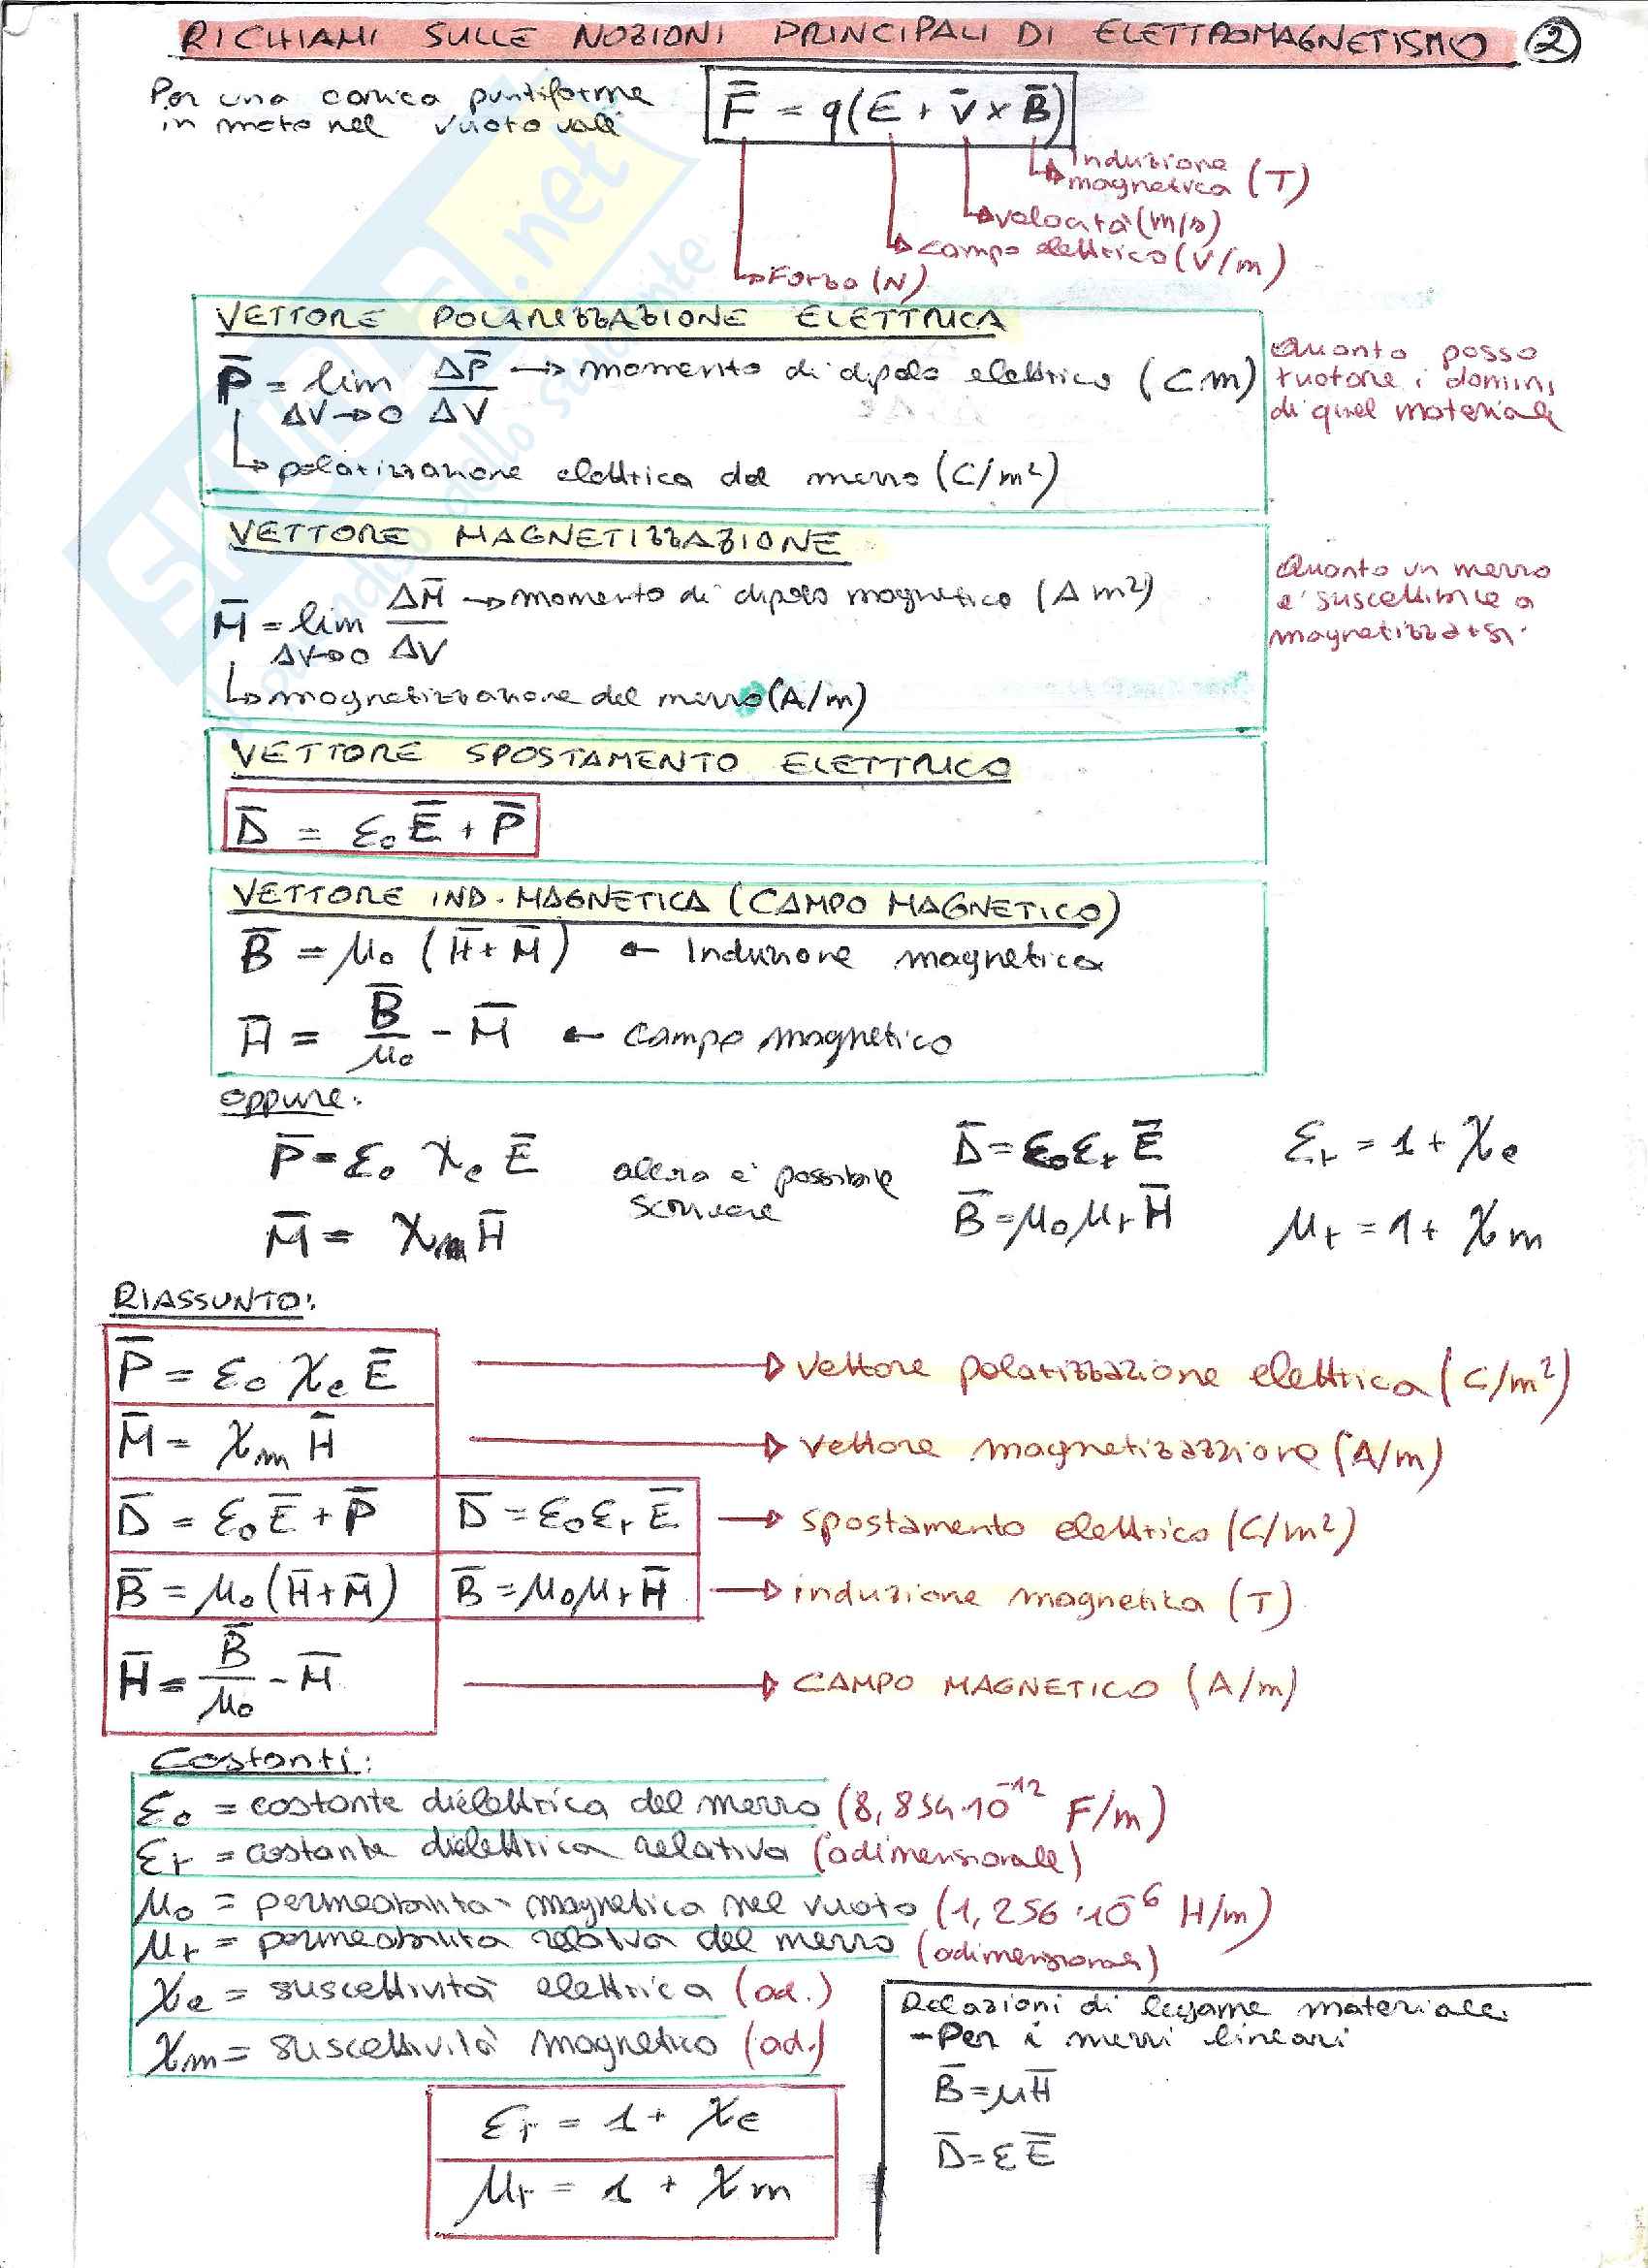 RICHIAMI SULLE NOZIONI PRINCIPALI DI ELETTROMAGNETISMO 2
Per una carica puntiforme
in moto nel vuoto vale
F̅ = q(E + v̅ × B̅)
Induzione
magnetica (T)
velocità (m/s)
campo elettrico (V/m)
Forza (N)
VETTORE POLARIZZAZIONE ELETTRICA
P̅ = lim ΔP̅/ΔV → momento di dipolo elettrico (C m)
ΔV→0
polarizzazione elettrica del mezzo (C/m²)
Quanto posso
ruotare i domini
di quel materiale
VETTORE MAGNETIZZAZIONE
M̅ = lim ΔM̅/ΔV → momento di dipolo magnetico (A m²)
ΔV→0
magnetizzazione del mezzo (A/m)
Quanto un mezzo
e' suscettibile a
magnetizzarsi.
VETTORE SPOSTAMENTO ELETTRICO
D̅ = ε₀E̅ + P̅
VETTORE IND. MAGNETICA (CAMPO MAGNETICO)
B̅ = μ₀ (H̅ + M̅) ← Induzione magnetica
H̅ = B̅/μ₀ - M̅ ← campo magnetico
oppure:
P̅ = ε₀ χe E̅
M̅ = χm H̅
allora e' possibile
scrivere
D̅ = ε₀εr E̅ εr = 1 + χe
B̅ = μ₀μr H̅ μr = 1 + χm
RIASSUNTO:
P̅ = ε₀ χe E̅ → vettore polarizzazione elettrica (C/m²)
M̅ = χm H̅ → vettore magnetizzazzione (A/m)
D̅ = ε₀E̅ + P̅ D̅ = ε₀εr E̅ → spostamento elettrico (C/m²)
B̅ = μ₀(H̅+M̅) B̅ = μ₀μr H̅ → induzione magnetica (T)
H̅ = B̅/μ₀ - M̅ → CAMPO MAGNETICO (A/m)
Costanti:
ε₀ = costante dielettrica del mezzo (8,854·10⁻¹² F/m)
εr = costante dielettrica relativa (adimensionale)
μ₀ = permeabilità magnetica nel vuoto (1,256·10⁻⁶ H/m)
μr = permeabilità relativa del mezzo (adimensionale)
χe = suscettività elettrica (ad.)
χm = suscettività magnetica (ad.)
εr = 1 + χe
μr = 1 + χm
Relazioni di legame materiale:
- Per i mezzi lineari
B̅ = μH̅
D̅ = εE̅